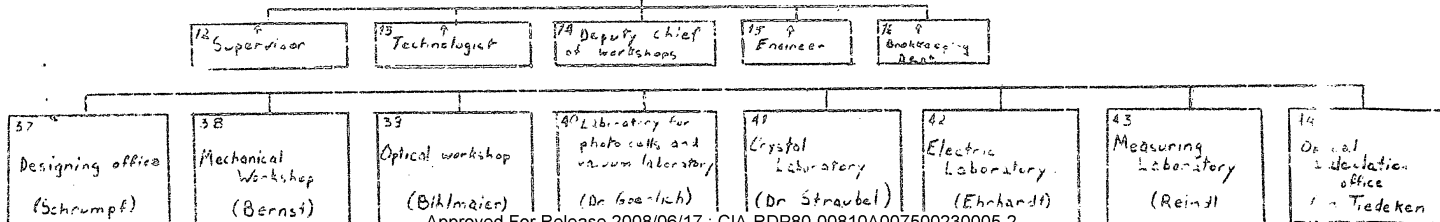 12 Supervisor
13 Technologist
14 Deputy chief
of workshops
15 Engineer
16
Bookkeeping
Dept
37
Designing office
(Schrumpf)
38
Mechanical
Workshop
(Bernst)
39
Optical workshop
(Bihlmaier)
40 Laboratory for
photo cells and
vacuum laboratory
(Dr Goerlich)
41
Crystal
Laboratory
(Dr Straubel)
42
Electric
Laboratory
(Ehrhardt)
43
Measuring
Laboratory
(Reindl)
office
Tiedeken
Approved For Release 2008/06/17 : CIA-RDP80-00810A007500230005-2